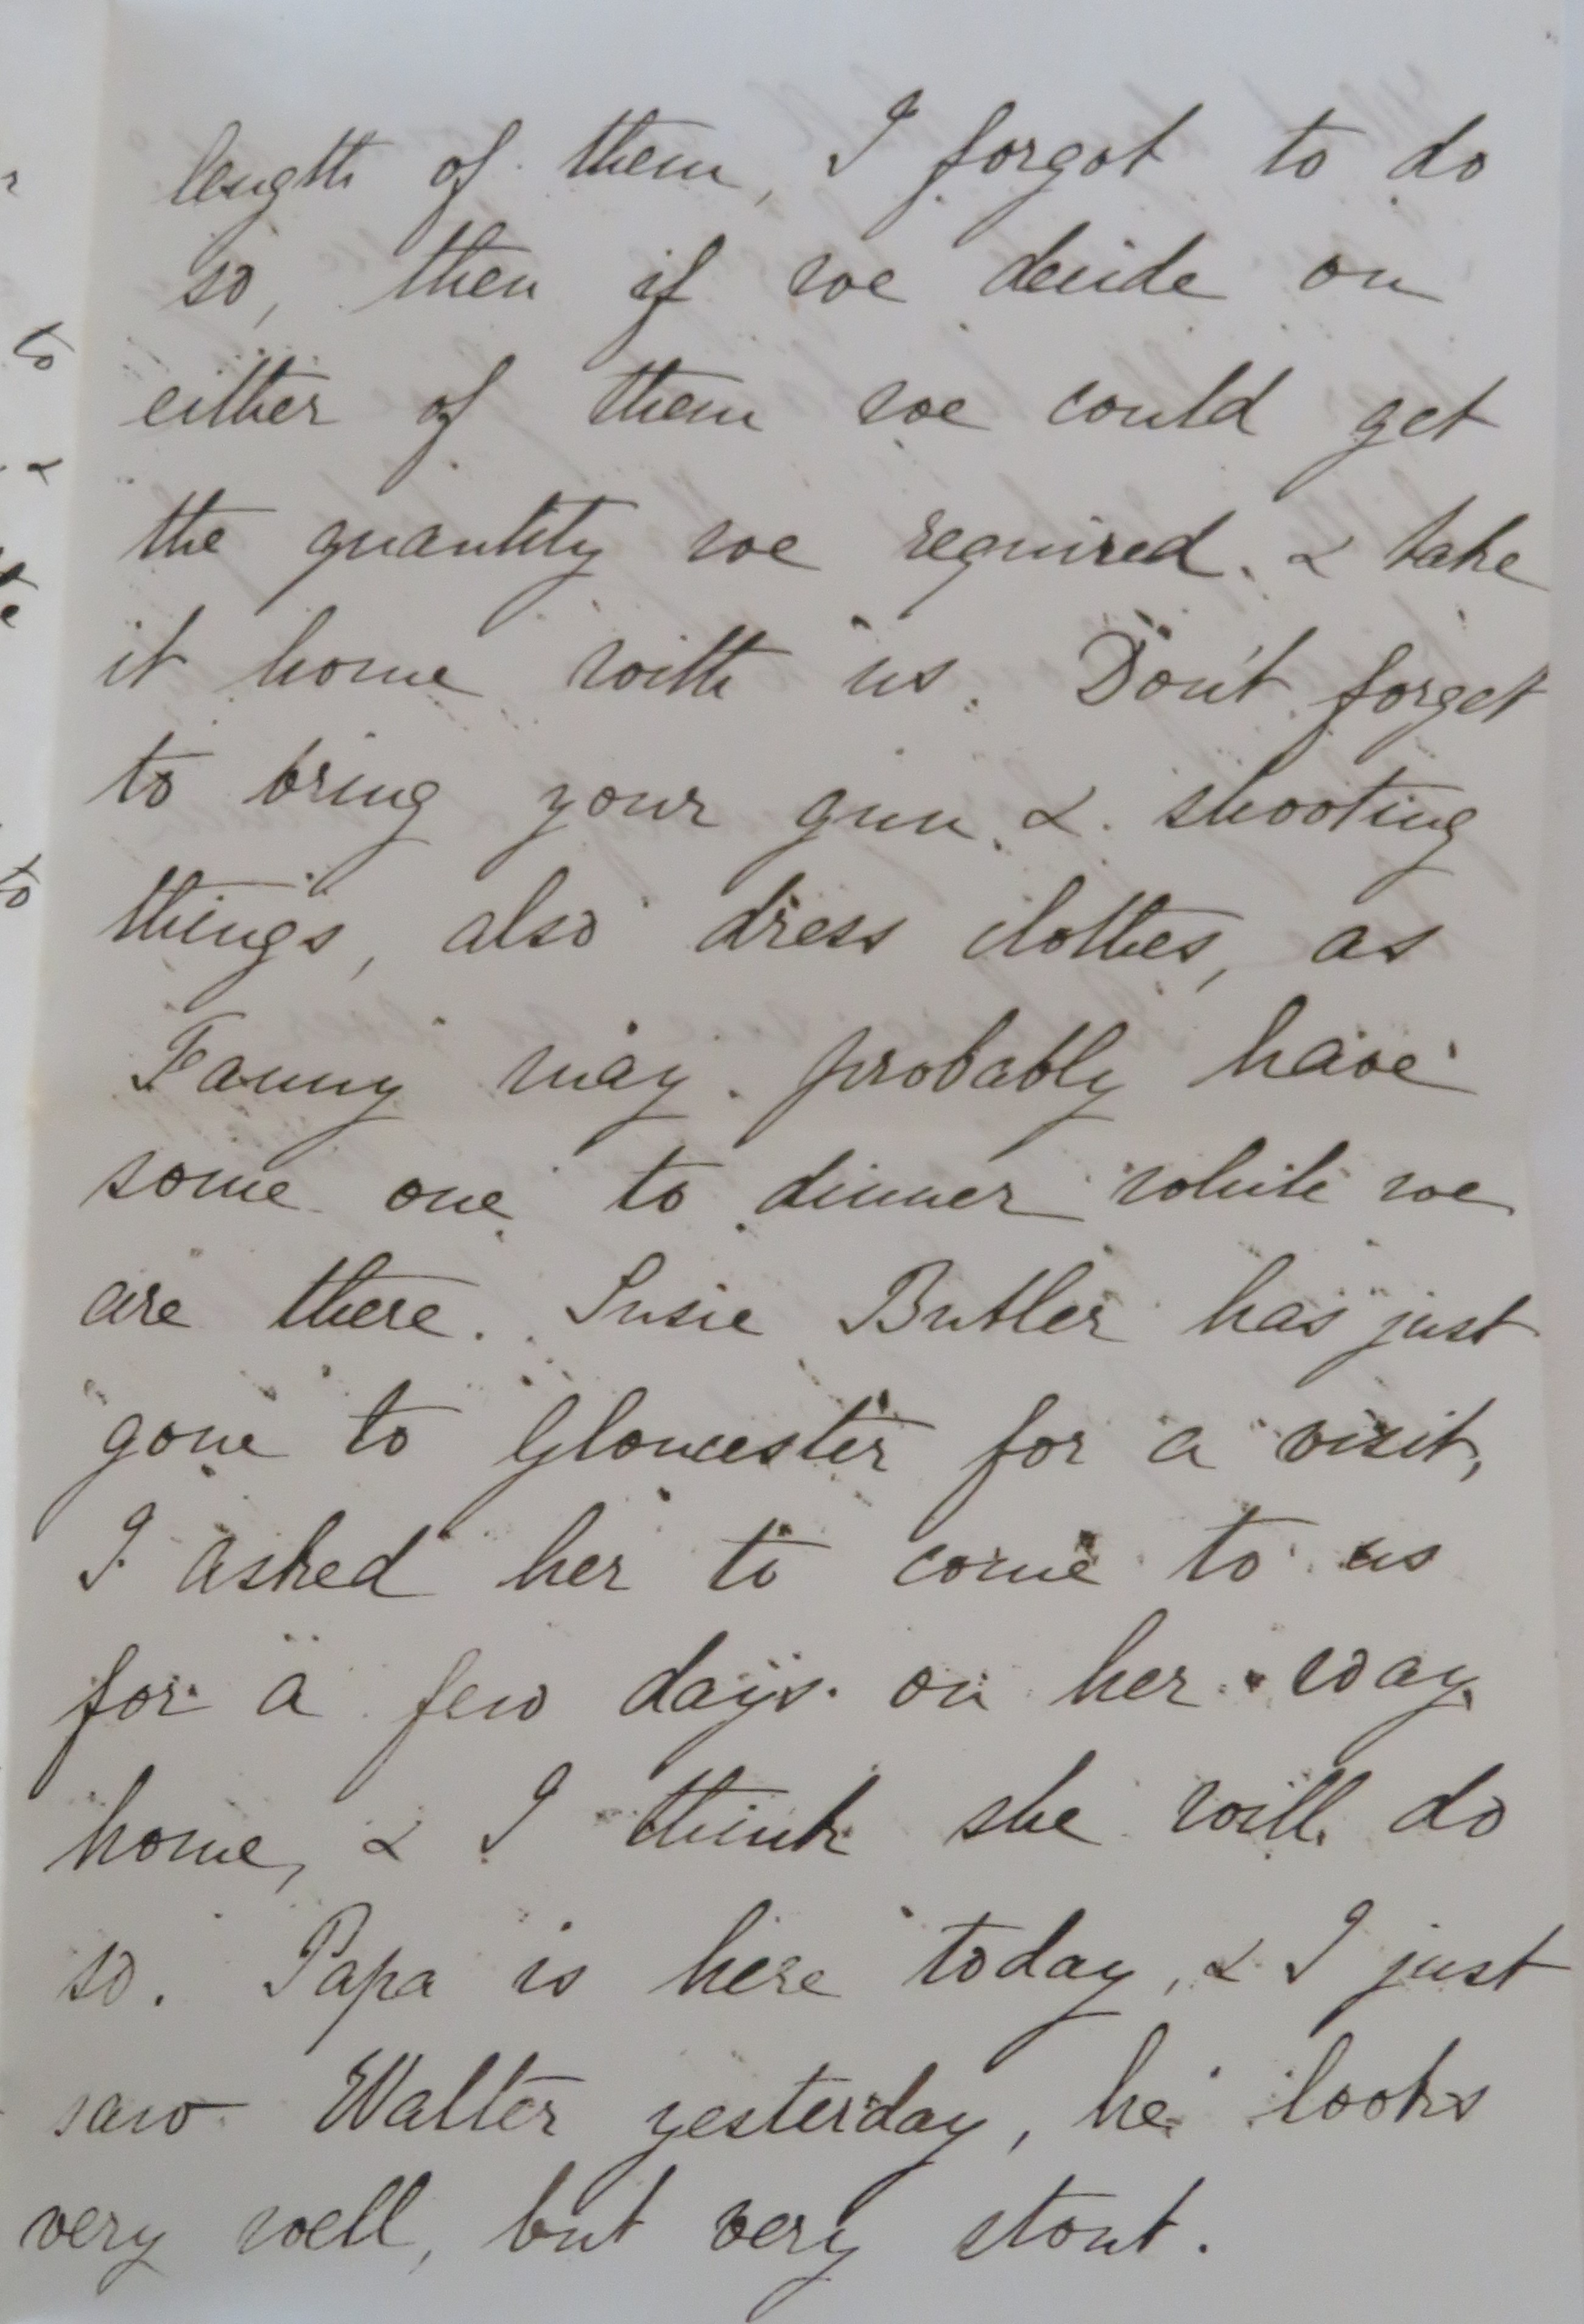 length of them, I forgot to do
so, then if we decide on
either of them we could get
the quantity we required. & take
it home with us. Don't forget
to bring your gun & shooting
things, also dress clothes, as
Fanny may probably have
some one to dinner while we
are there. Susie Butler has just
gone to Gloucester for a visit,
I asked her to come to us
for a few days on her way
home, & I think she will do
so. Papa is here today, & I just
saw Walter yesterday, he looks
very well, but very stout.
to
&
to